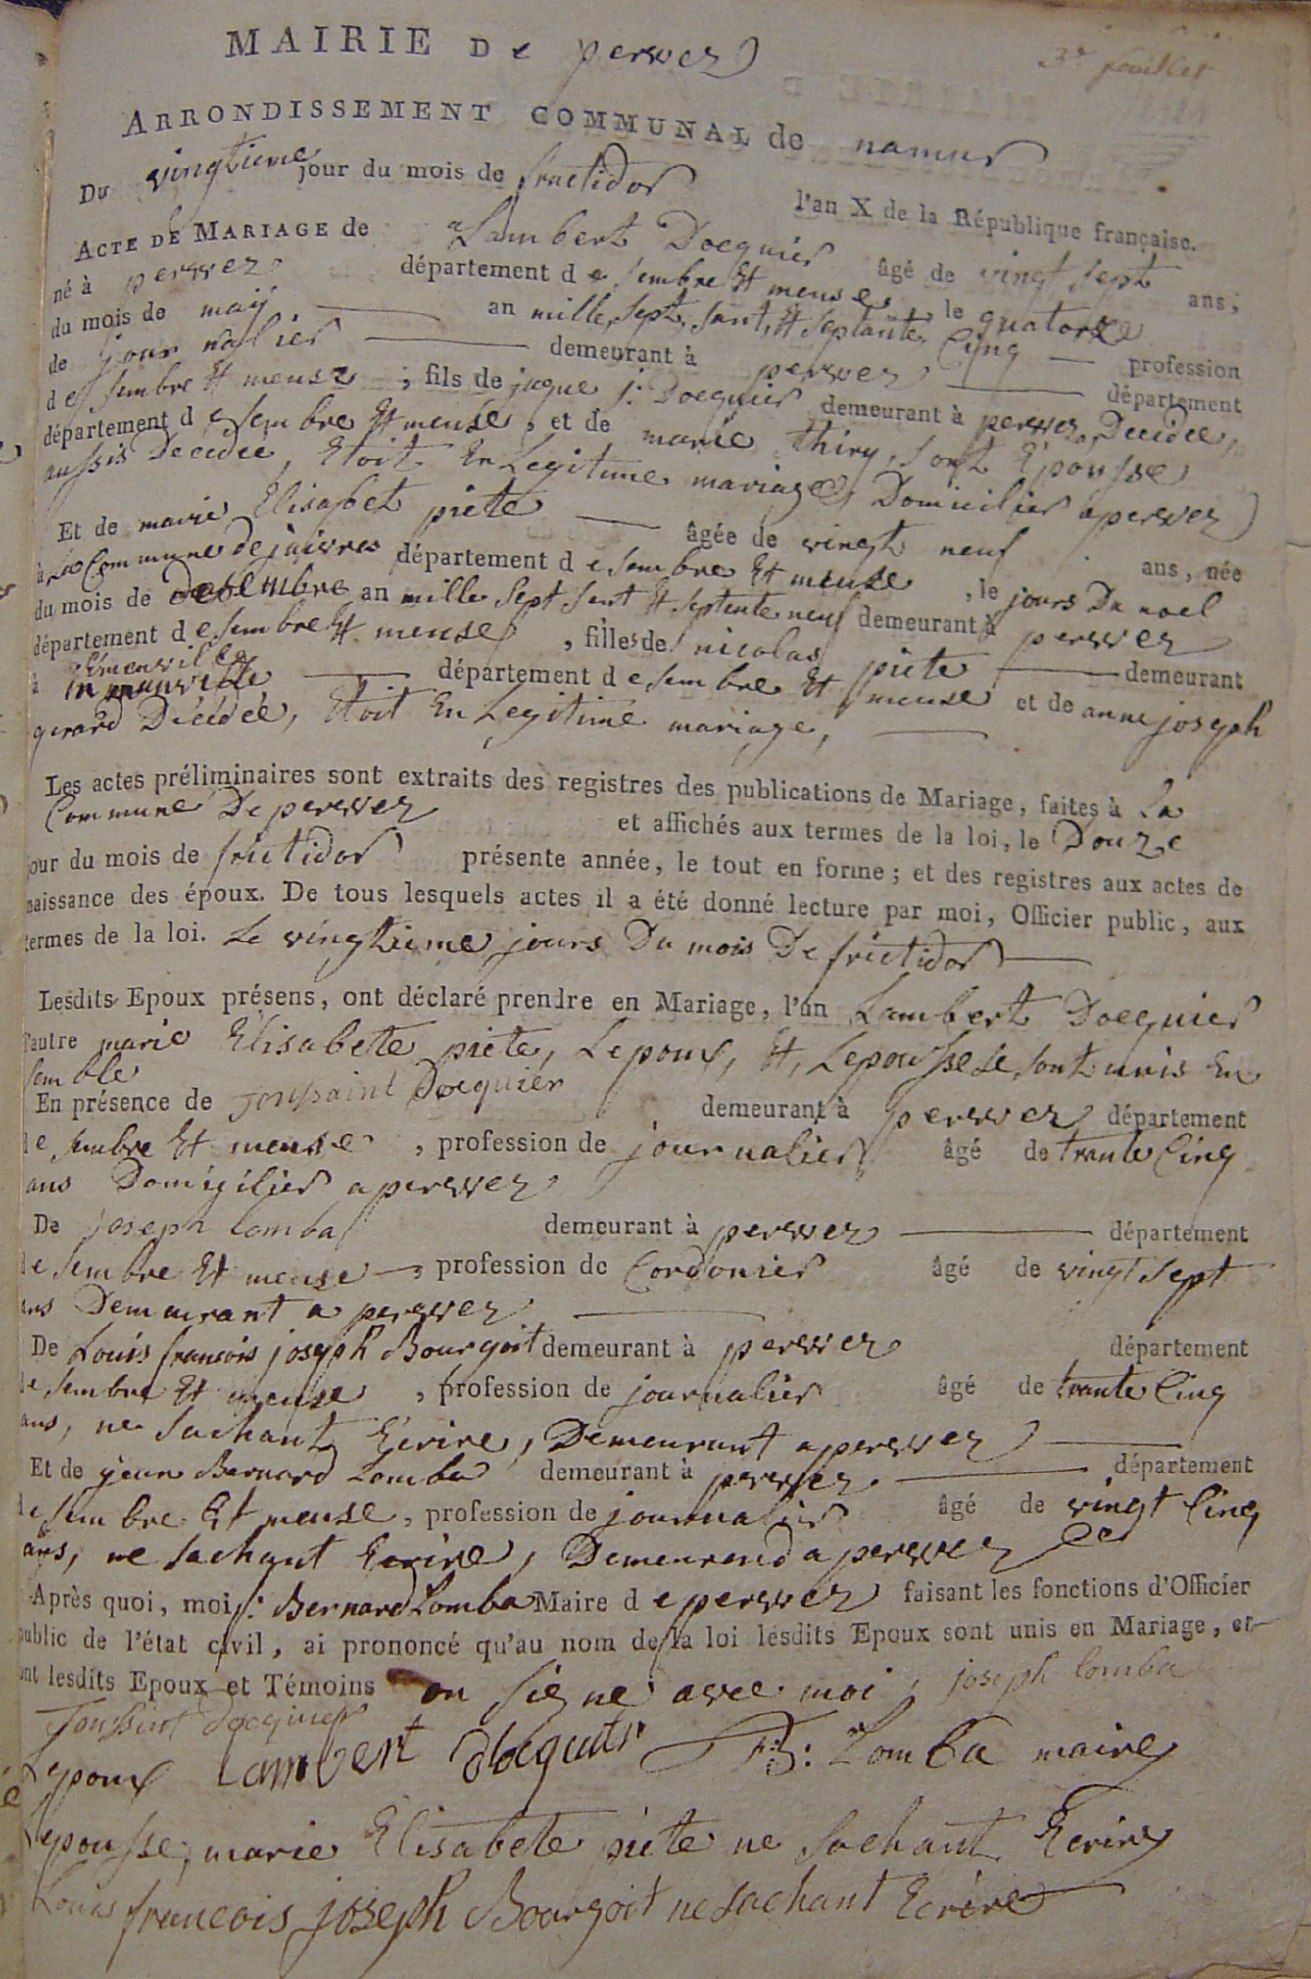 MAIRIE De perwez
3e feuillet
ARRONDISSEMENT COMMUNAL de namur
Du vingtieme jour du mois de fructidor l'an X de la République française.
ACTE DE MARIAGE de Lambert Docquier âgé de vingt sept ans,
né à perwez département de sembre Et meuse, le quatorze
du mois de maÿ an mille, sept, sant, Et septante Cinq profession
de journalier demeurant à perwez département
de sembre Et meuse, fils de jaque j: Docquier demeurant à perwez, Decidee,
département de sembre Et meuse, et de marie thiry, sont Épousse
aussis Decedeé, Etoit En Legitime mariage, Domicilier a perwez
Et de marie Elisabet piete âgée de vingt neuf ans, née
à la Commune de jaivres département de sembre Et meuse, le jours Du noel
du mois de decembre an mille sept sent Et septente neuf demeurant à perwez
département de sembre Et meuse, fille de nicolas piete demeurant
à Émenville département de sembre Et meuse et de anne joseph
gerard Décédeé, Etoit En Legitime mariage,
Les actes préliminaires sont extraits des registres des publications de Mariage, faites à La
Commune De perwez et affichés aux termes de la loi, le Douze
jour du mois de frictidor présente année, le tout en forme; et des registres aux actes de
naissance des époux. De tous lesquels actes il a été donné lecture par moi, Officier public, aux
termes de la loi. Le vingtieme jours Du mois De frictidor
Lesdits Epoux présens, ont déclaré prendre en Mariage, l'un Lambert Docquier
l'autre marie Elisabete piete, Lepoux, Et, Lepousse se sont unis En
semble
En présence de Toussaint Docquier demeurant à perwez département
de sembre Et meuse, profession de journalier âgé de trante Cinq
ans Domigilier a perwez
De joseph Lomba demeurant à perwez département
de sembre Et meuse, profession de Cordonier âgé de vingt sept
ans Demeurant a perwez
De Louis francois joseph Bourgoit demeurant à perwez département
de sembre Et meuse, profession de journalier âgé de trante Cinq
ans, ne sachant Ecrire, Demeurant a perwez
Et de jean Bernard Lomba demeurant à perwez département
de sembre Et meuse, profession de journalier âgé de vingt Cinq
ans, ne sachant Ecrire, Demeurend a perwez
Après quoi, moi j: Bernard Lomba Maire de perwez faisant les fonctions d'Officier
public de l'état civil, ai prononcé qu'au nom de la loi lesdits Epoux sont unis en Mariage, et
ont lesdits Epoux et Témoins on signe avec moi, joseph Lomba
Toussint Docquier
Lepoux Lambert docquier B: Lomba maire
Lepousse, marie Elisabete piete ne sachant Ecrire
Louis francois joseph Bourgoit ne sachant Ecrire